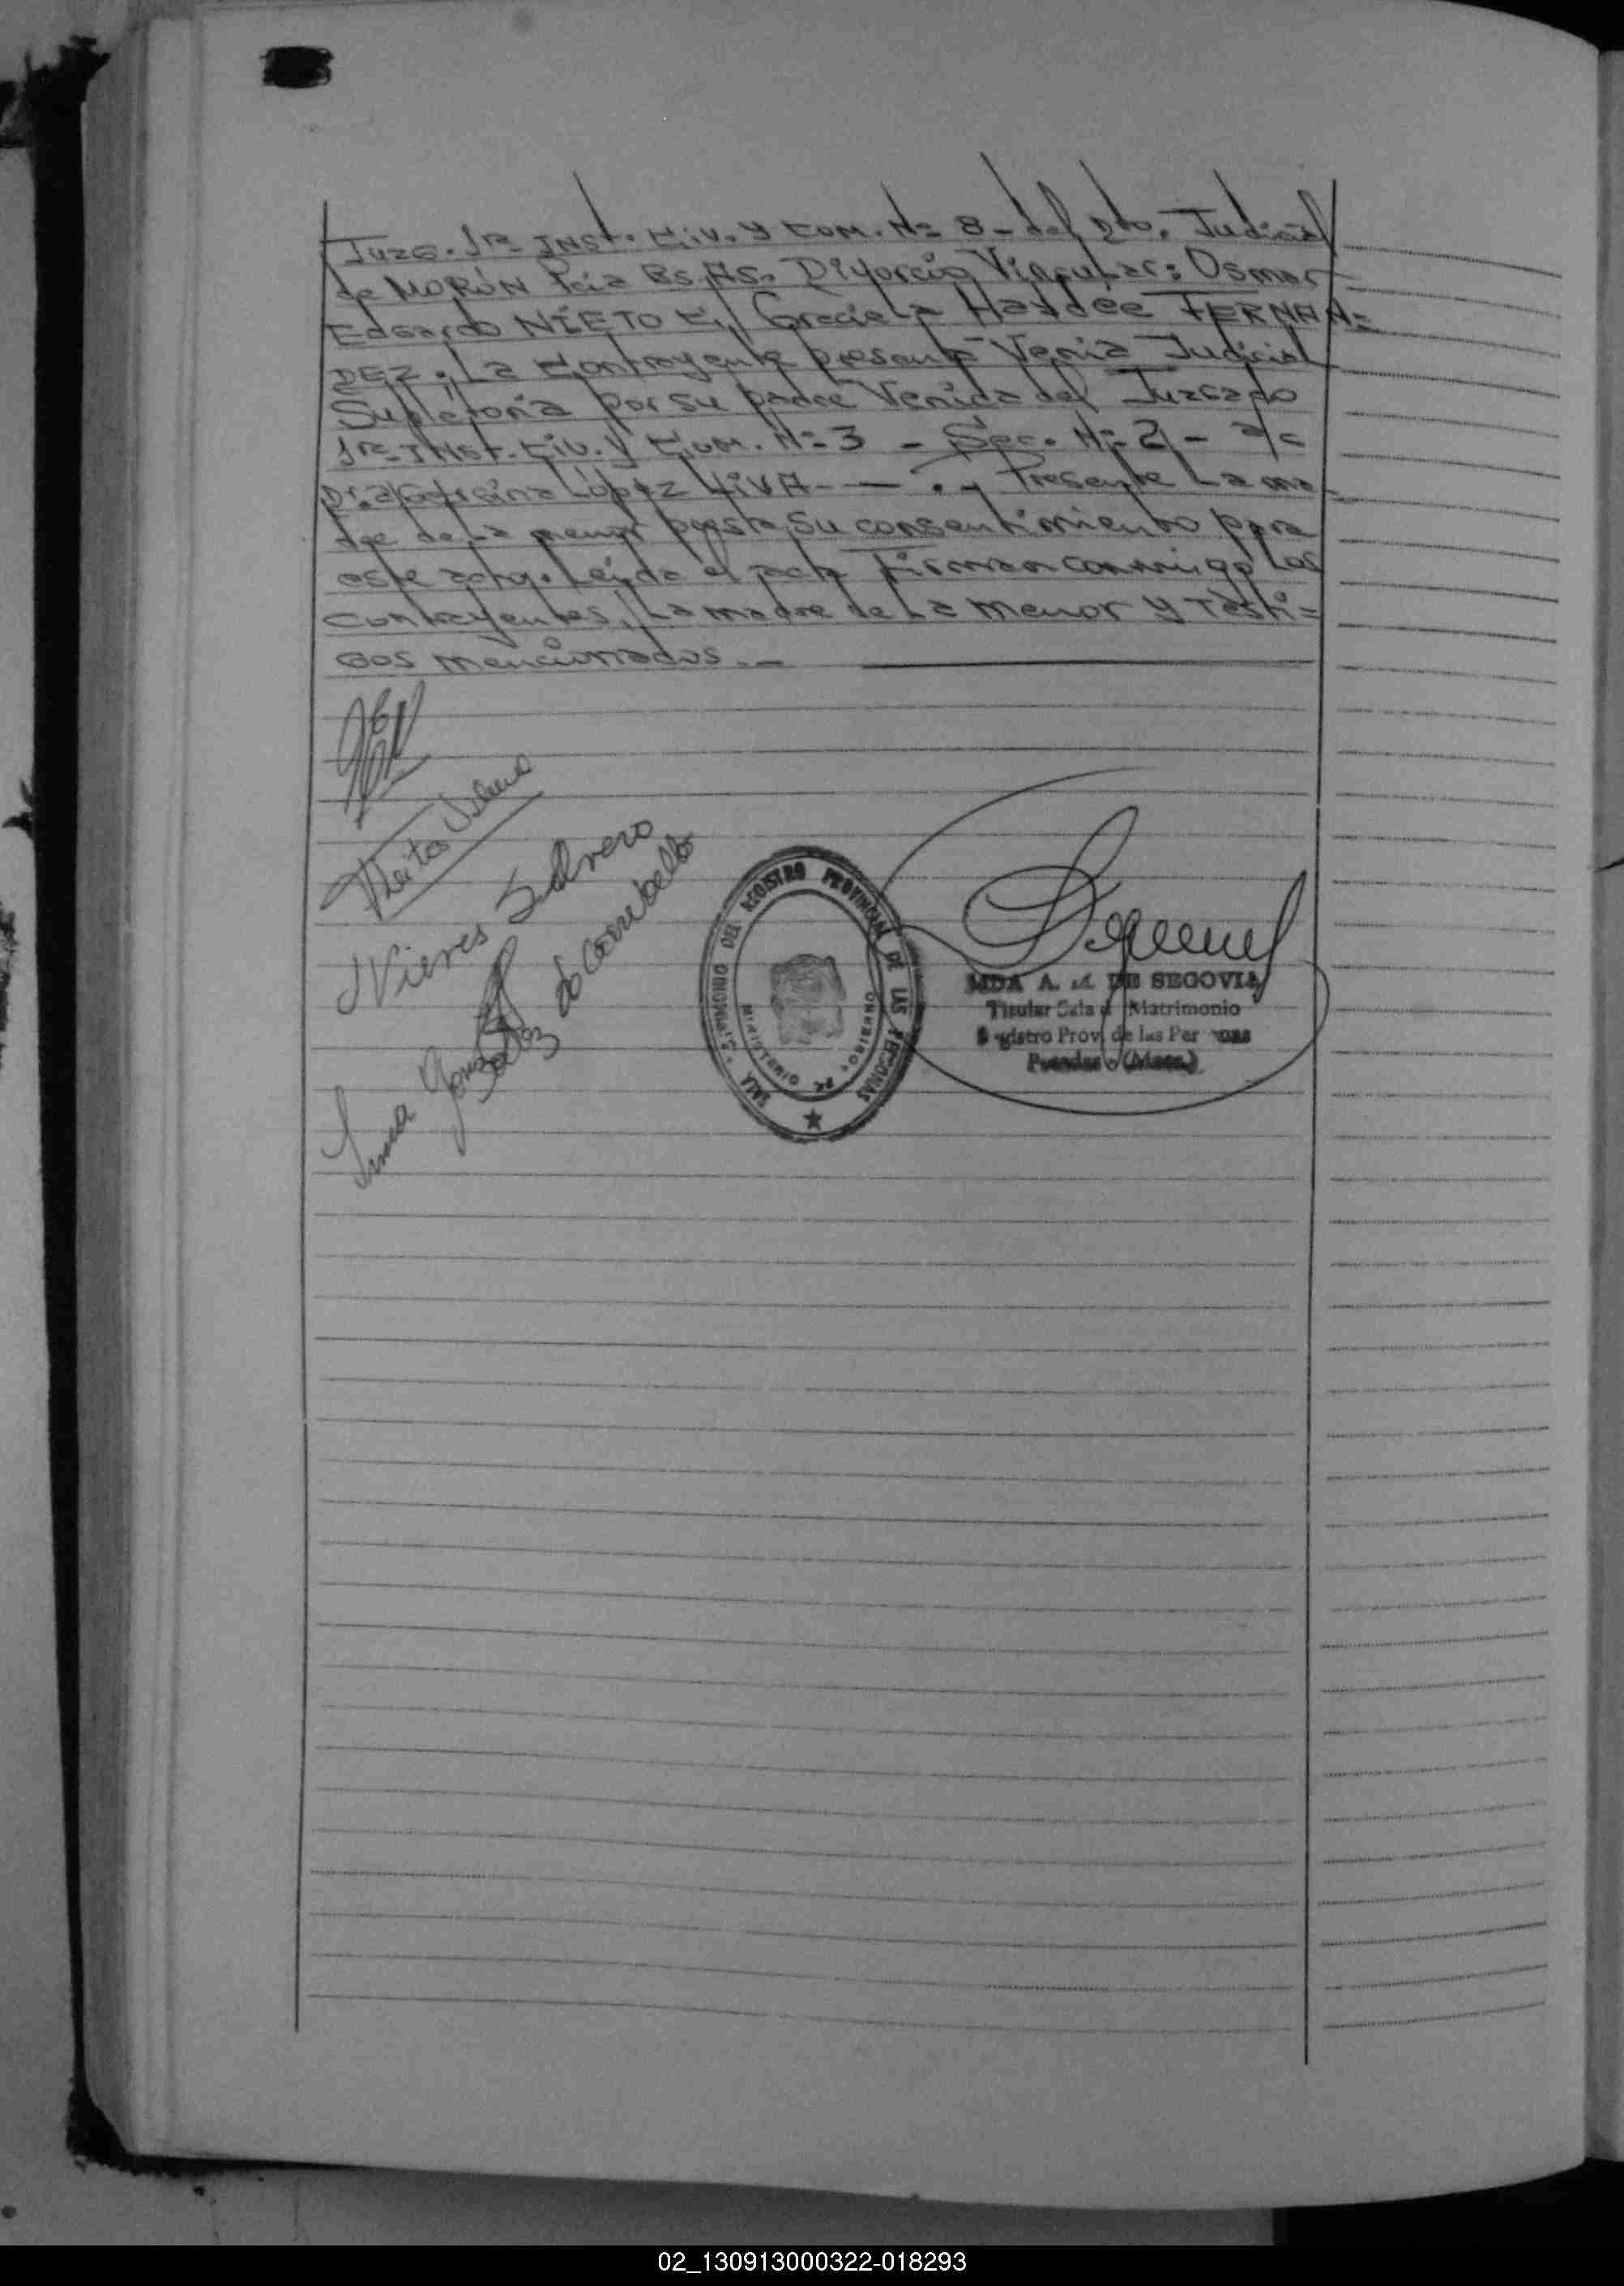 Juzg. 1ra INST. Civ. y Com. Nº 8 - del Dto. Judicial
de MORÓN Pcia Bs. As. Divorcio Vincular: Osmar
Edgardo NIETO c/ Graciela Haydee FERNAN=
DEZ. La contrayente presenta Venia Judicial
Supletoria por su padre Venida del Juzgado
1ra INST. Civ. y Com. Nº 3 - Sec. Nº 2 - a/c
Dra López - . - Presente La ma-
dre de La menor presta su consentimiento para
este acto. Leída el acta Firman conmigo Los
contrayentes, La madre de La menor y Testi=
gos mencionados. -
Nieves
Irma Gonzalez de
SALA DEL REGISTRO PROVINCIAL DE LAS PERSONAS
MINISTERIO DE GOBIERNO
A. M. DE SEGOVIA
Titular Sala d Matrimonio
Registro Prov. de las Personas
Posadas (Mnes.)
02_130913000322-018293